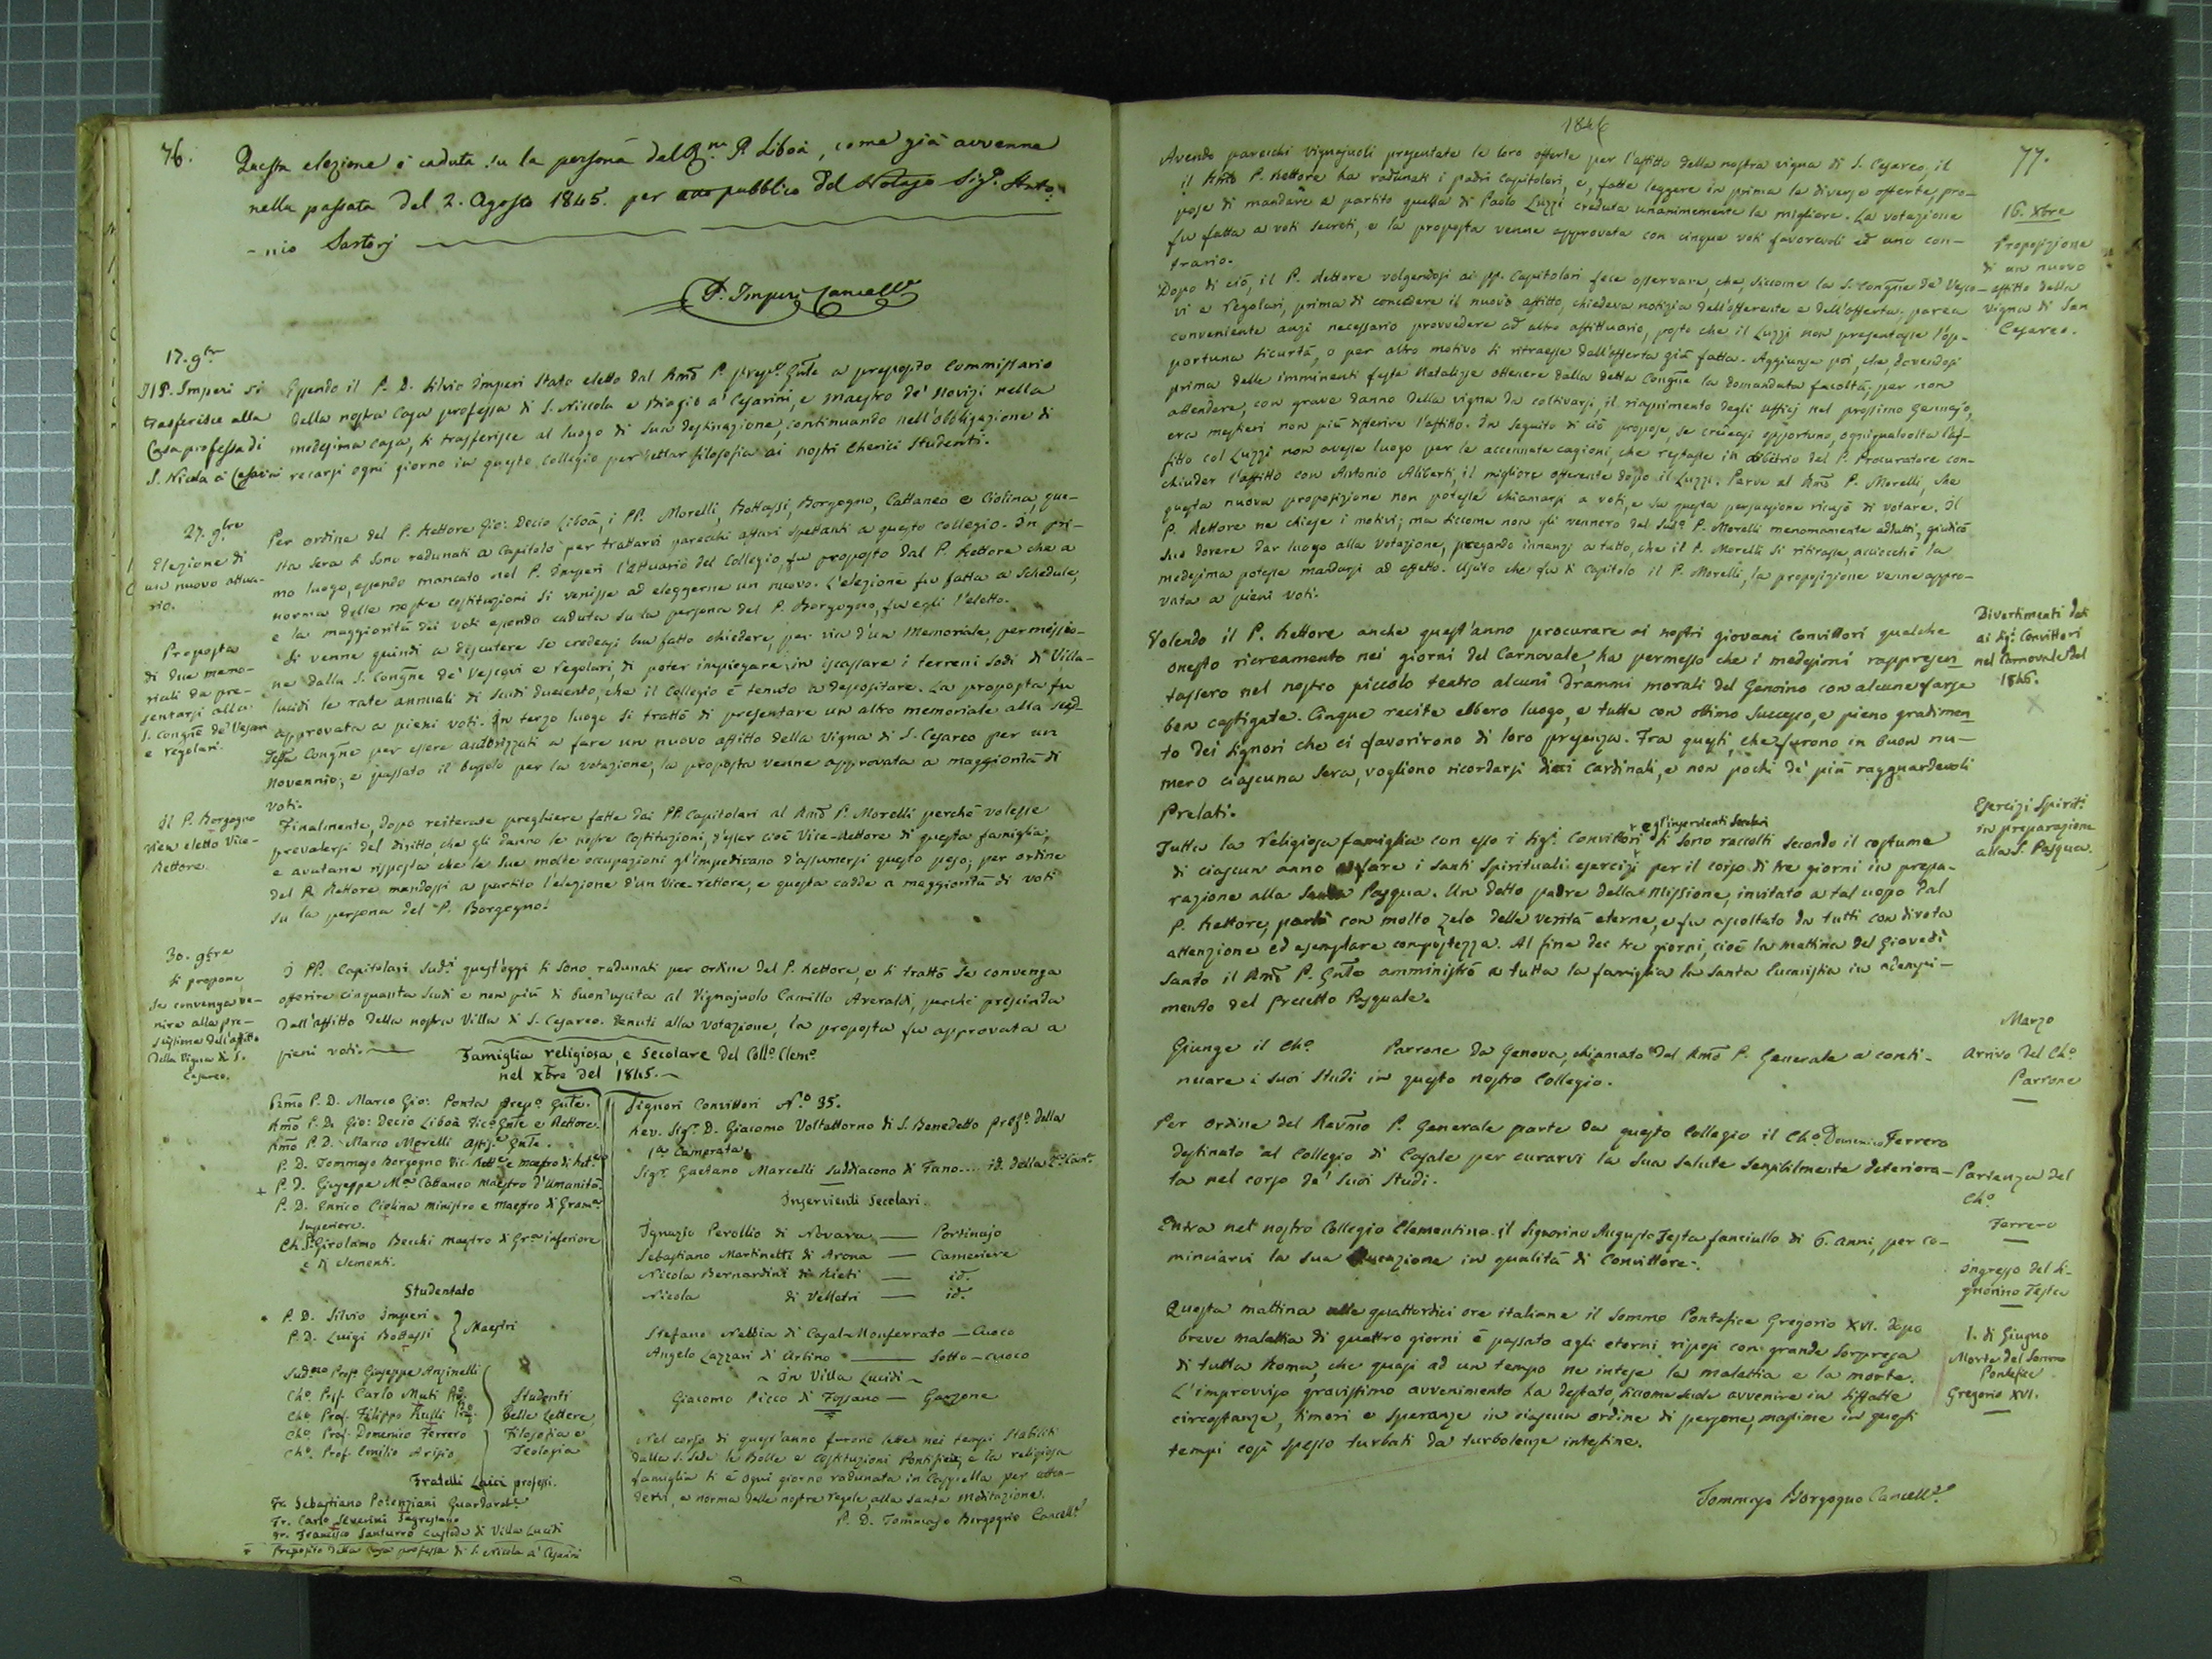 76.
Questa elezione è caduta su la persona del R.mo P. Liboà, come già avvenne
nella passata del 2. Agosto 1845. per pubblico del Notajo Sig.r Anto-
-nio Sartorj
P. Imperi Cancell.e
17. 9bre
Il P. Imperi si
trasferisce alla
Casa professa di
S. Nicola a' Cesarini
Essendo il P. D. Silvio Imperi stato eletto dal Rmo P. Prep.o Gnle a preposito Commissario
della nostra Casa professa di S. Niccola e Biagio a' Cesarini, e Maestro de' Novizj nella
medesima casa, si trasferisce al luogo di sua destinazione, continuando nell'obbligazione di
recarsi ogni giorno in questo collegio per dettar filosofia ai nostri Cherici Studenti.
27. 9bre
Elezione di
un nuovo attua-
rio.
Per ordine del P. Rettore Gio: Decio Liboà, i PP. Morelli, Bottassi, Borgogno, Cattaneo e Ciolina, que-
sta sera si sono radunati a Capitolo per trattarvi parecchi affari spettanti a questo collegio. In pri-
mo luogo, essendo mancato nel P. Imperi l'attuario del Collegio, fu proposto dal P. Rettore che a
norma delle nostre costituzioni si venisse ad eleggerne un nuovo. L'elezione fu fatta a schedule,
e la maggiorità dei voti essendo caduta su la persona del P. Borgogno, fu egli l'eletto.
Proposta
di due memo-
riali da pre-
sentarsi alla
S. Congne de' Vescovi
e regolari.
Si venne quindi a discutere se credeasi ben fatto chiedere, per via d'un Memoriale, permissio-
ne dalla S. Congne de' Vescovi e regolari, di poter impiegare in iscassare i terreni sodi di Villa-
lucidi le rate annuali di Scudi duecento, che il Collegio è tenuto a depositare. La proposta fu
approvata a pieni voti. In terzo luogo si trattò di presentare un altro memoriale alla sud-
detta Congne per essere autorizzati a fare un nuovo affitto della Vigna di S. Cesareo per un
novennio; e passato il bussolo per la votazione, la proposta venne approvata a maggiorità di
voti.
Il P. Borgogno
vien eletto Vice-
Rettore.
Finalmente, dopo reiterate preghiere fatte dai PP. Capitolari al Rmo P. Morelli perchè volesse
prevalersi del diritto, che gli danno le nostre costituzioni, d'esser cioè Vice-Rettore di questa famiglia,
e avutane risposta che le sue molte occupazioni gl'impedivano d'assumersi questo peso; per ordine
del P. Rettore mandossi a partito l'elezione d'un Vice-rettore, e questa cadde a maggiorità di voti
su la persona del P. Borgogno.
30. 9bre
Si propone,
se convenga ve-
nire alla pre-
dell'affitto
della Vigna di S.
Cesareo.
I PP. Capitolari sud.i quest'oggi si sono radunati per ordine del P. Rettore, e si trattò se convenga
offerire cinquanta scudi e non più di buon'uscita al Vignajuolo Camillo Averaldi, perchè prescinda
dall'affitto della nostra Villa di S. Cesareo. Venuti alla votazione, la proposta fu approvata a
pieni voti.
Famiglia religiosa, e secolare del Coll.o Clem.o
nel Xbre del 1845.
Rmo P. D. Marco Gio: Ponta Prep.o Gnle.
Rmo P. D. Gio: Decio Liboà Vic.o Gnle e Rettore.
Rmo P. D. Marco Morelli Assis.e Gnle.
P. D. Tommaso Borgogno Vic. Rett.e e maestro di Ret.ca
+ P. D. Giuseppe M.a Cattaneo Maestro d'Umanità.
P. D. Enrico Ciolina ministro e Maestro di Gram.ca
Superiore.
Ch. Girolamo Becchi maestro di Gr.ca inferiore
e di elementi.
Studentato
P. D. Silvio Imperi
P. D. Luigi Bottassi
Maestri
Sud.no Prof. Giuseppe Anzinelli
Ch.o Prof. Carlo Muti
Ch.o Prof. Filippo Rulli
Ch.o Prof. Domenico Ferrero
Ch.o Prof. Emilio Arisio
Studenti
Belle Lettere,
Filosofia e
Teologia
Fratelli Laici professi.
Fr. Sebastiano Potenziani Guardarob.e
Fr. Carlo Severini Sagrestano
Fr. Francesco Santurro Custode di Villa Lucidi
* Preposito della Casa professa di S. Nicola a' Cesarini
Signori Convittori N.o 35.
Rev. Sig.r D. Giacomo Voltattorno di S. Benedetto Pref.o della
1.a Camerata.
Sig.r Gaetano Marcelli Suddiacono di Fano... id. della 2.a Cam.a
Inservienti Secolari.
Ignazio Perollio di Novara — Portinajo
Sebastiano Martinetti di Arona — Cameriere
Nicola Bernardini di Rieti — id.
Nicola di Velletri — id.
Stefano Nebbia di Casal-Monferrato — Cuoco
Angelo Lazzari di Urbino — Sotto-cuoco
~ In Villa Lucidi ~
Giacomo Picco di Fossano — Garzone
Nel corso di quest'anno furono lette nei tempi stabiliti
dalla S. Sede le Bolle e costituzioni Pontificie, e la religiosa
famiglia si è ogni giorno radunata in Cappella per atten-
dervi, a norma delle nostre regole, alla santa meditazione.
P. D. Tommaso Borgogno Cancell.e
1846
77.
Avendo parecchi vignajuoli presentate le loro offerte per l'affitto della nostra vigna di S. Cesareo, il
il Rmo P. Rettore ha radunati i padri capitolari, e, fatte leggere in prima le diverse offerte, pro-
pose di mandare a partito quella di Paolo Luzzi creduta unanimemente la migliore. La votazione
fu fatta a voti secreti, e la proposta venne approvata con cinque voti favorevoli ed uno con-
trario.
16. Xbre
Proposizione
di un nuovo
affitto della
vigna di San
Cesareo.
Dopo di ciò, il P. Rettore volgendosi ai PP. Capitolari fece osservare, che, siccome la S. Congne de' Vesco-
vi e regolari, prima di concedere il nuovo affitto, chiedeva notizia dell'offerente e dell'offerta, parea
conveniente anzi necessario provvedere ad altro affittuario, posto che il Luzzi non presentasse l'op-
portuna sicurtà, o per altro motivo si ritraesse dall'offerta già fatta. Aggiunse poi, che, dovendosi
prima delle imminenti feste Natalizie ottenere dalla detta Congne la domandata facoltà, per non
attendere, con grave danno della vigna da coltivarsi, il riaprimento degli ufficj nel prossimo Gennajo,
era mestieri non più differire l'affitto. In seguito di ciò propose, se credeasi opportuno, ogniqualvolta l'af-
fitto col Luzzi non avesse luogo per le accennate cagioni, che restasse in arbitrio del P. Procuratore con-
chiuder l'affitto con Antonio Aliberti, il migliore offerente dopo il Luzzi. Parve al Rmo P. Morelli, che
questa nuova proposizione non potesse chiamarsi a voti, e su questa persuasione ricusò di votare. Il
P. Rettore ne chiese i motivi; ma siccome non gli vennero dal Sud.o P. Morelli menomamente addotti, giudicò
suo dovere dar luogo alla votazione, pregando innanzi a tutto, che il P. Morelli si ritirasse, acciocchè la
medesima potesse mandarsi ad effetto. Uscito che fu di Capitolo il P. Morelli, la proposizione venne appro-
vata a pieni voti.
Divertimenti dati
ai Sig.i Convittori
nel Carnovale del
1846.
Volendo il P. Rettore anche quest'anno procurare ai nostri giovani convittori qualche
onesto ricreamento nei giorni del Carnovale, ha permesso che i medesimi rappresen
tassero nel nostro piccolo teatro alcuni drammi morali del Genoino con alcune farse
ben castigate. Cinque recite ebbero luogo, e tutte con ottimo successo, e pieno gradimen
to dei Signori che ci favorirono di loro presenza. Fra questi, che furono in buon nu-
mero ciascuna sera, vogliono ricordarsi dieci Cardinali, e non pochi de' più ragguardevoli
Prelati.
Esercizi Spirit.i
in preparazione
alla S. Pasqua.
e gl'inservienti Secolari
Tutta la religiosa famiglia con esso i Sig.i Convittori si sono raccolti secondo il costume
di ciascun anno a fare i santi spirituali esercizj per il corso di tre giorni in prepa-
razione alla Santa Pasqua. Un dotto padre della Missione, invitato a tal uopo dal
P. Rettore, parlò con molto zelo delle verità eterne, e fu ascoltato da tutti con divota
attenzione ed esemplare compostezza. Al fine dei tre giorni, cioè la mattina del Giovedì
Santo il Rmo P. Gnle amministrò a tutta la famiglia la santa Eucaristia in adempi-
mento del precetto Pasquale.
Marzo
Arrivo del Ch.o
Parrone
Giunge il Ch.o Parrone da Genova, chiamato dal Rmo P. Generale a conti-
nuare i suoi studi in questo nostro Collegio.
Per ordine del Revmo P. Generale parte da questo Collegio il Ch.o Domenico Ferrero
destinato al Collegio di Casale per curarvi la sua salute sensibilmente deteriora-
ta nel corso de' suoi studi.
Partenza del
Ch.o
Ferrero
Entra nel nostro Collegio Clementino il Signorino Augusto Testa fanciullo di 6. anni, per co-
minciarvi la sua educazione in qualità di Convittore.
Ingresso del Si-
gnorino Testa
Questa mattina alle quattordici ore italiane il Sommo Pontefice Gregorio XVI. dopo
breve malattia di quattro giorni è passato agli eterni riposi con grande sorpresa
di tutta Roma, che quasi ad un tempo ne intese la malattia e la morte.
L'improvviso gravissimo avvenimento ha destato, siccome suole avvenire in siffatte
circostanze, timori e speranze in ciascun ordine di persone, massime in questi
tempi così spesso turbati da turbolenze intestine.
1. di Giugno
Morte del Sommo
Pontefice
Gregorio XVI.
Tommaso Borgogno Cancell.e